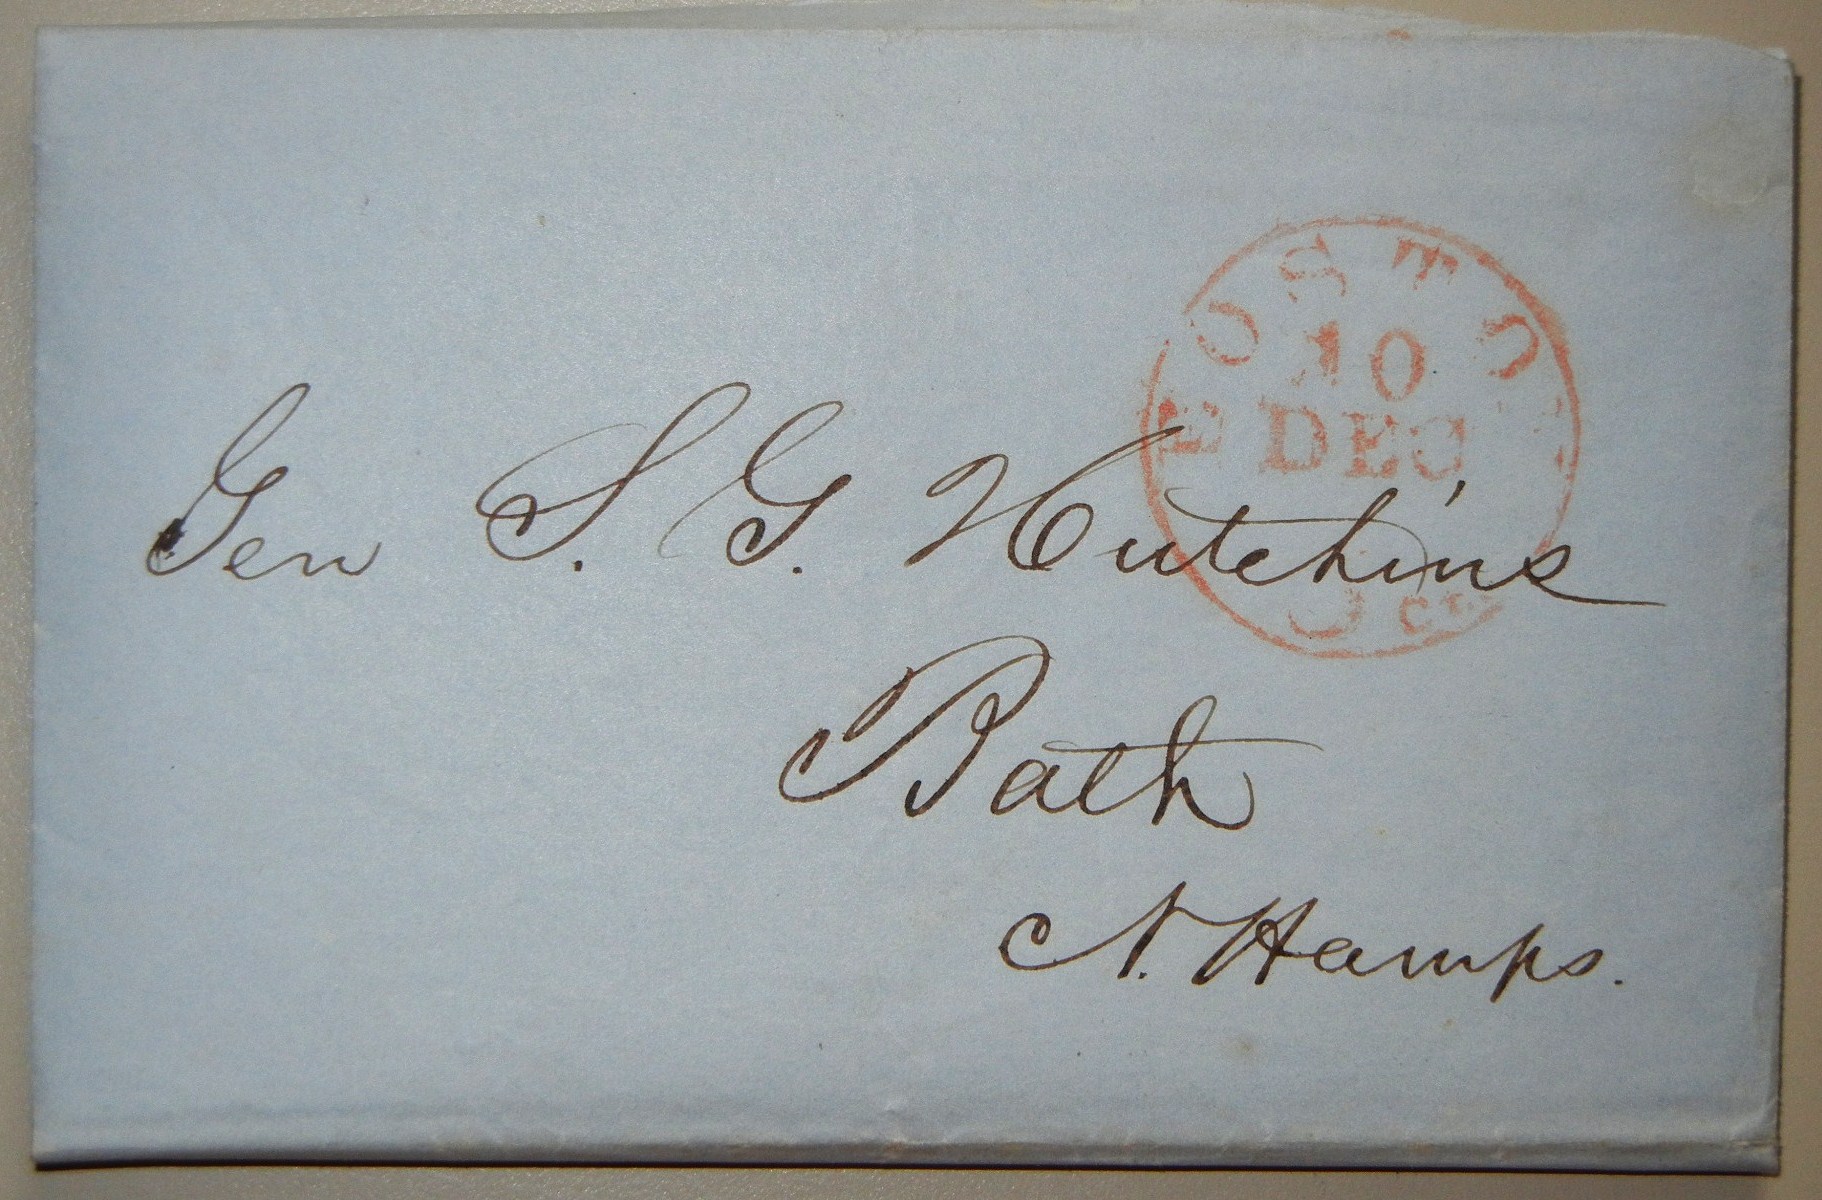 BOSTON
10
DEC
5 cts
Gen S. G. Hutchins
Bath
N. Hamps.